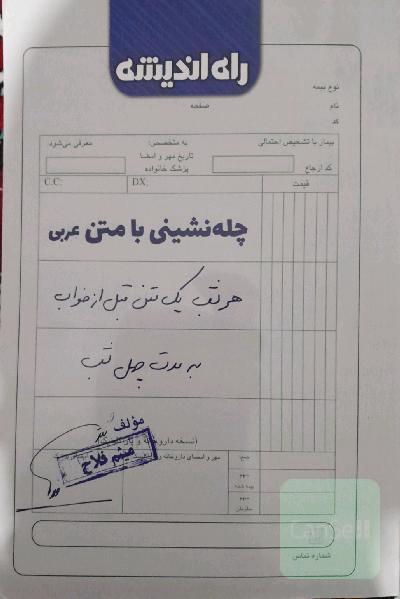 راه اندیشه
نوع بیمه
نام
صفحه
کد
بیمار با تشخیص احتمالی
به متخصص:
معرفی می‌شود.
کد ارجاع
تاریخ مهر و امضا
پزشک خانواده
C.C:
DX:
قیمت
چله‌نشینی با متن عربی
هر شب یک متن قبل از خواب
به مدت چهل شب
مؤلف
میثم فلاح
مهر و امضای داروخانه و
جمع:
سهم
بیمه شده
سهم
سازمان
شماره تماس